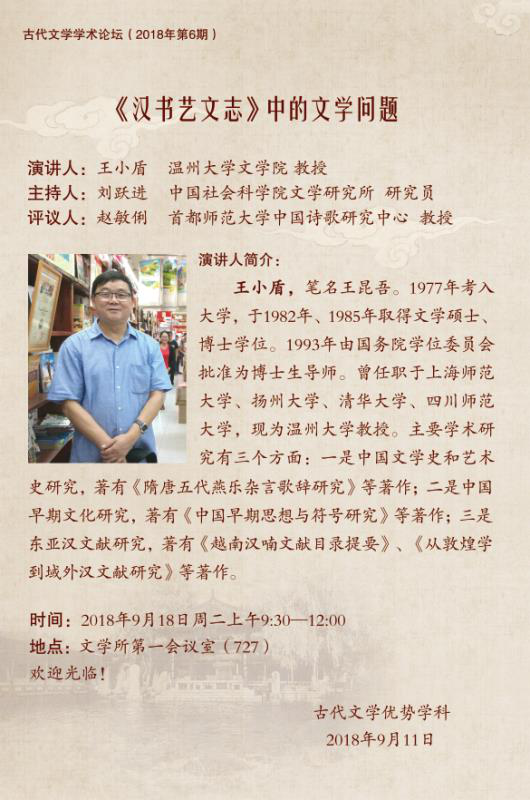 古代文学学术论坛（2018年第6期）
《汉书艺文志》中的文学问题
演讲人：王小盾 温州大学文学院 教授
主持人：刘跃进 中国社会科学院文学研究所 研究员
评议人：赵敏俐 首都师范大学中国诗歌研究中心 教授
演讲人简介：
王小盾，笔名王昆吾。1977年考入
大学，于1982年、1985年取得文学硕士、
博士学位。1993年由国务院学位委员会
批准为博士生导师。曾任职于上海师范
大学、扬州大学、清华大学、四川师范
大学，现为温州大学教授。主要学术研
究有三个方面：一是中国文学史和艺术
史研究，著有《隋唐五代燕乐杂言歌辞研究》等著作；二是中国
早期文化研究，著有《中国早期思想与符号研究》等著作；三是
东亚汉文献研究，著有《越南汉喃文献目录提要》、《从敦煌学
到域外汉文献研究》等著作。
时间：2018年9月18日周二上午9:30—12:00
地点：文学所第一会议室（727）
欢迎光临！
古代文学优势学科
2018年9月11日